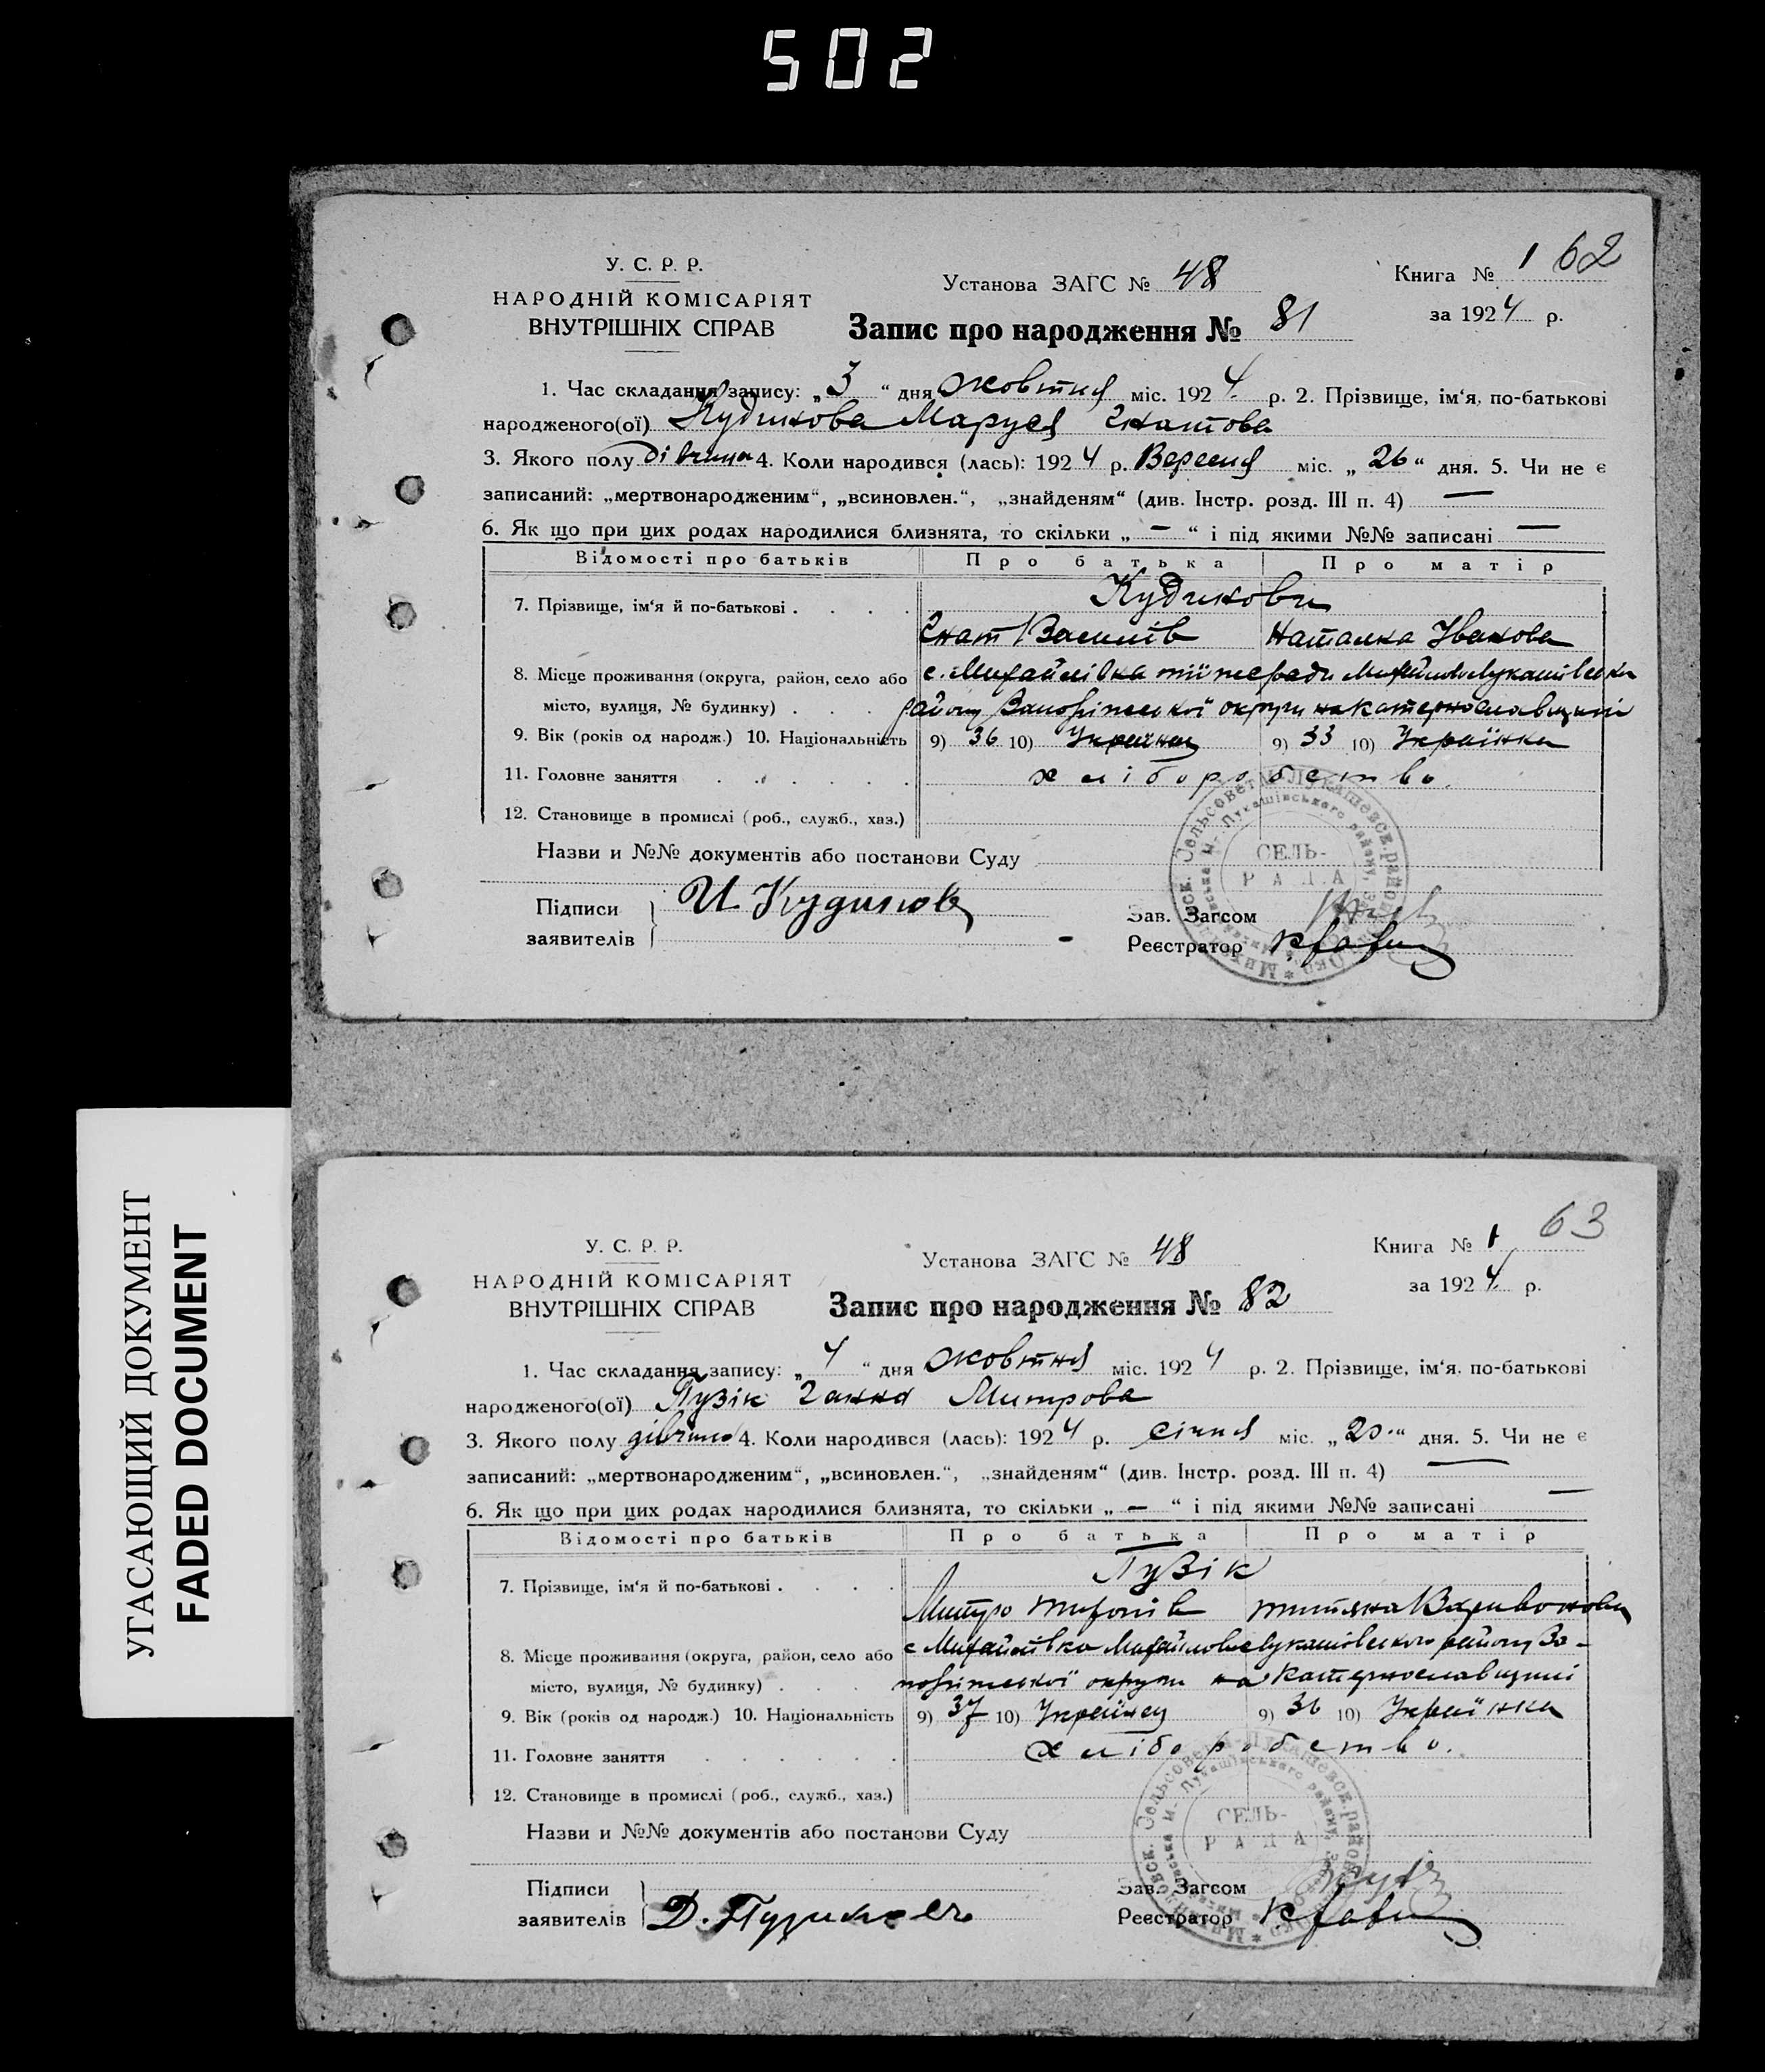 502
1 62
У. С. Р. Р.
НАРОДНІЙ КОМІСАРІЯТ
ВНУТРІШНІХ СПРАВ
Установа ЗАГС № 48
Книга №
за 1924 р.
Запис про народження № 81
1. Час складання запису: „3“ дня жовтня міс. 1924 р. 2. Прізвище, ім‘я, по-батькові
народженого(ої) Кудинова Маруся Гнатова
3. Якого полу дівчина 4. Коли народився (лась): 1924 р. Вересня міс. „26“ дня. 5. Чи не є
записаний: „мертвонародженим“, „всиновлен.“, „знайденям“ (див. Інстр. розд. III п. 4) —
6. Як що при цих родах народилися близнята, то скільки „—“ і під якими №№ записані —
Відомості про батьків Про батька Про матір
7. Прізвище, ім‘я й по-батькові . . . . Кудинови
Гнат Василів Наталка Іванова
8. Місце проживання (округа, район, село або с. Михайлівка тії же ради Михайлово Лукашівського
місто, вулиця, № будинку) . . . району Запоріжської округи на Катеринославщині
9. Вік (років од народж.) 10. Національність 9) 36 10) Українец 9) 33 10) Українка
11. Головне заняття . . . . . . хліборобство.
12. Становище в промислі (роб., служб., хаз.)
Назви и №№ документів або постанови Суду
Підписи
заявителів
И Кудинов
Зав. Загсом
Реєстратор
СЕЛЬ-
РАДА
УГАСАЮЩИЙ ДОКУМЕНТ
FADED DOCUMENT
63
У. С. Р. Р.
НАРОДНІЙ КОМІСАРІЯТ
ВНУТРІШНІХ СПРАВ
Установа ЗАГС № 48
Книга № 1
за 1924 р.
Запис про народження № 82
1. Час складання запису: „4“ дня жовтня міс. 1924 р. 2. Прізвище, ім‘я, по-батькові
народженого(ої) Пузік Ганна Митрова
3. Якого полу дівчина 4. Коли народився (лась): 1924 р. січня міс. „20.“ дня. 5. Чи не є
записаний: „мертвонародженим“, „всиновлен.“, „знайденям“ (див. Інстр. розд. III п. 4) —
6. Як що при цих родах народилися близнята, то скільки „—“ і під якими №№ записані —
Відомості про батьків Про батька Про матір
7. Прізвище, ім‘я й по-батькові . . . . Пузік
Митро Тихонів Титяна
8. Місце проживання (округа, район, село або с Михайлівка Михайлово Лукашівського району За-
місто, вулиця, № будинку) . . . поріжської округи на Катеринославщині
9. Вік (років од народж.) 10. Національність 9) 37 10) Українец 9) 36 10) Українка
11. Головне заняття . . . . . . хліборобство.
12. Становище в промислі (роб., служб., хаз.)
Назви и №№ документів або постанови Суду
Підписи
заявителів
Д.
Зав. Загсом
Реєстратор
СЕЛЬ-
РАДА